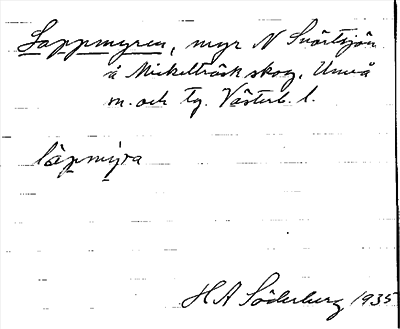 Lappmyren, myr N Snörtsjön
å Mickelträsk skog, Umeå
m. och tg. Västerb. l.
lapmyra
H A Söderberg 1935